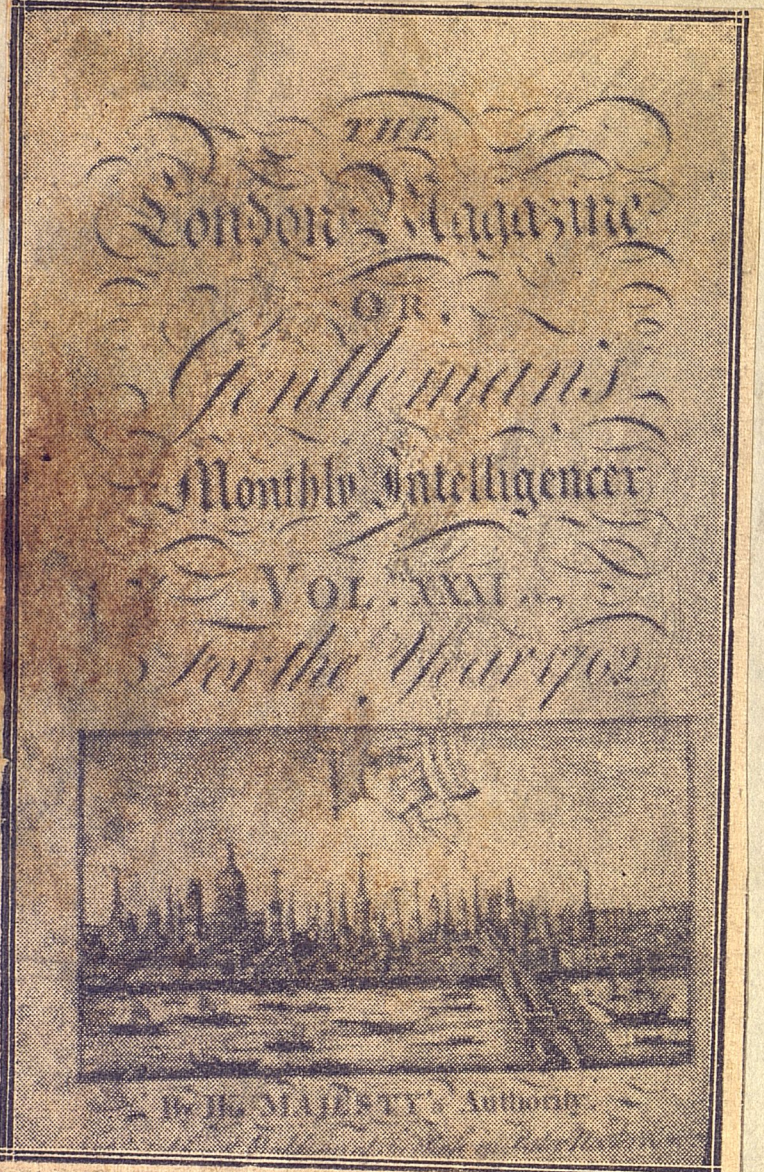 THE
London Magazine
OR,
Gentleman's
Monthly Intelligencer
VOL. XXXI.
For the Year 1762
By His MAJESTY's Authority.